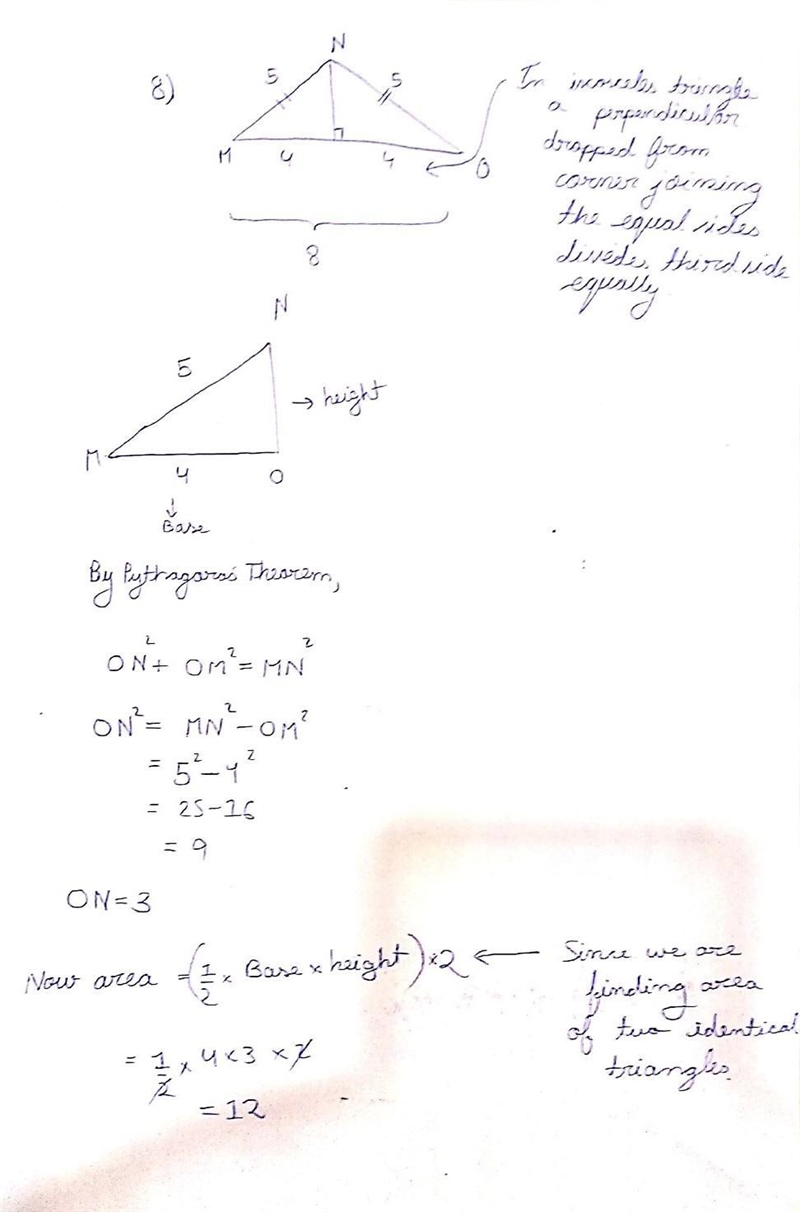 8)
N
5
5
M
4
4
O
8
In isosceles triangle
a perpendicular
dropped from
corner joining
the equal sides
divides third side
equally
N
5
→ height
M
4
O
↓
Base
By Pythagoras Theorem,
ON² + OM² = MN²
ON² = MN² - OM²
= 5² - 4²
= 25 - 16
= 9
ON = 3
Now area = (1/2 × Base × height) × 2 ← Since we are
finding area
of two identical
triangles.
= 1/2 × 4 × 3 × 2
= 12